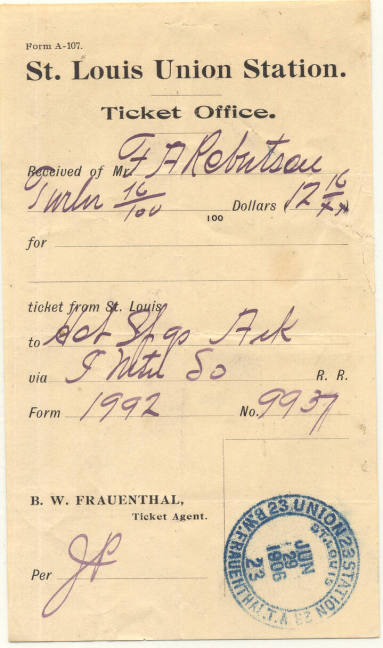 Form A-107.
St. Louis Union Station.
Ticket Office.
Received of Mr. F A Robertson
16/100 Dollars (12 16/xx
100
for
ticket from St. Louis
to Hot Spgs Ark
via So R. R.
Form 1992 No. 9937
B. W. FRAUENTHAL,
Ticket Agent.
Per
UNION STATION
ST. LOUIS
JUN
29
1906
23
B.W. FRAUENTHAL T.A
23
23
23